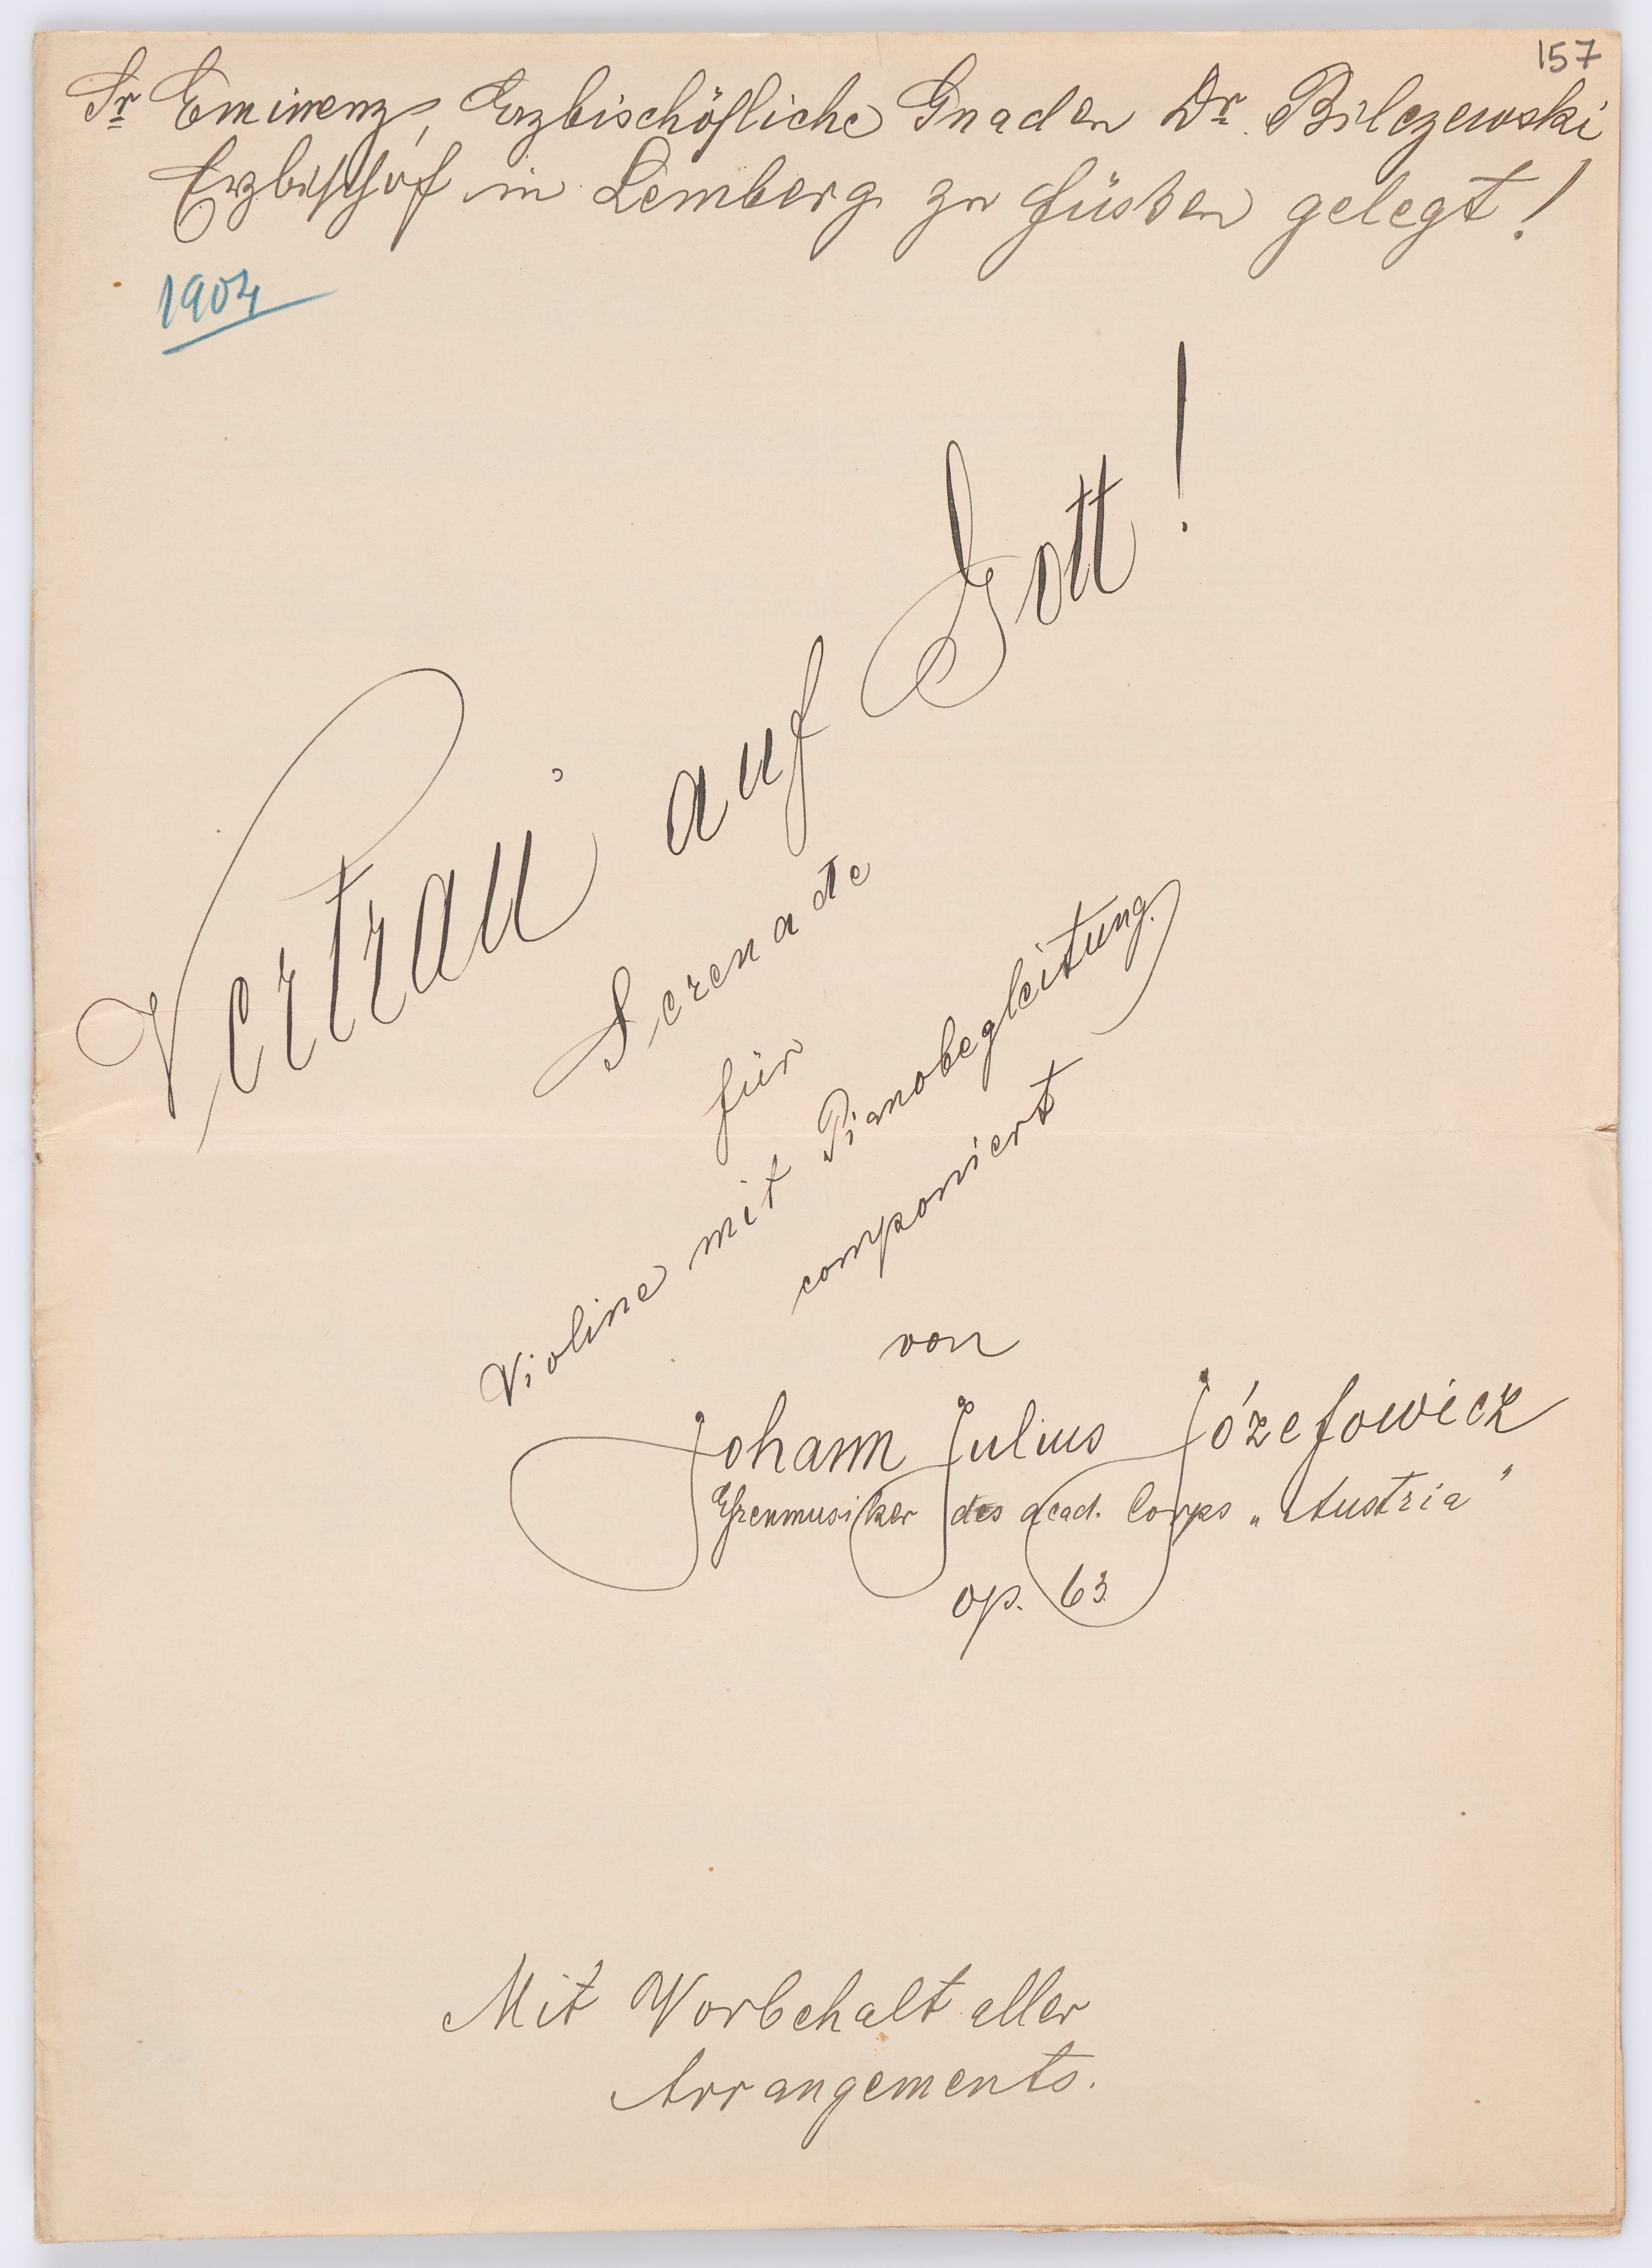 157
Sr Eminenz, Erzbischöfliche Gnaden Dr. Bilczewski
Erzbischof in Lemberg zu Füssen gelegt!
1904
Vertrau' auf Gott!
Serenade
für
Violine mit Pianobegleitung
componiert
von
Johann Julius Józefowicz
Ehrenmusiker des acad. Corps „Austria"
op. 63
Mit Vorbehalt aller
Arrangements.